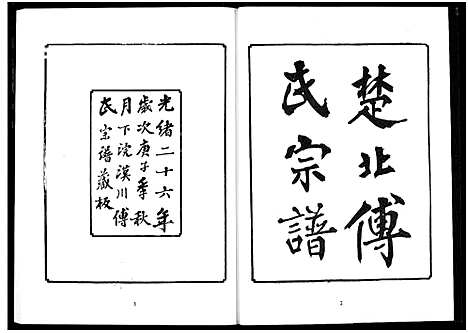 楚北傅
氏宗譜
光緒二十六年
歲次庚子季秋
月下浣漢川傅
氏宗譜藏板
2
1